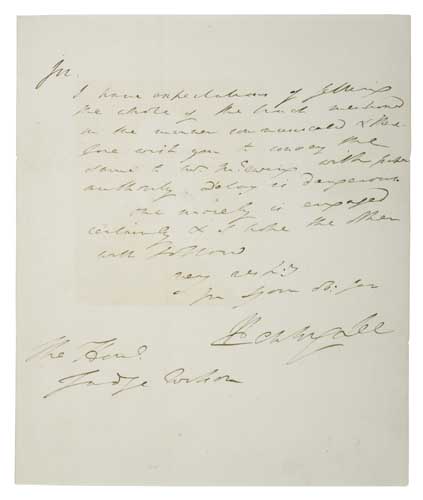 Sir.
I have expectations of getting
the whole of the land mentioned
in the manner communicated & there
fore wish you to convey the
same to with proper
authority. Delay is dangerous
one moiety is engaged
certainly & I hope the other
will follow
very resp'y
Sir Your Ob. Ser
The Honl.
Judge Wilson